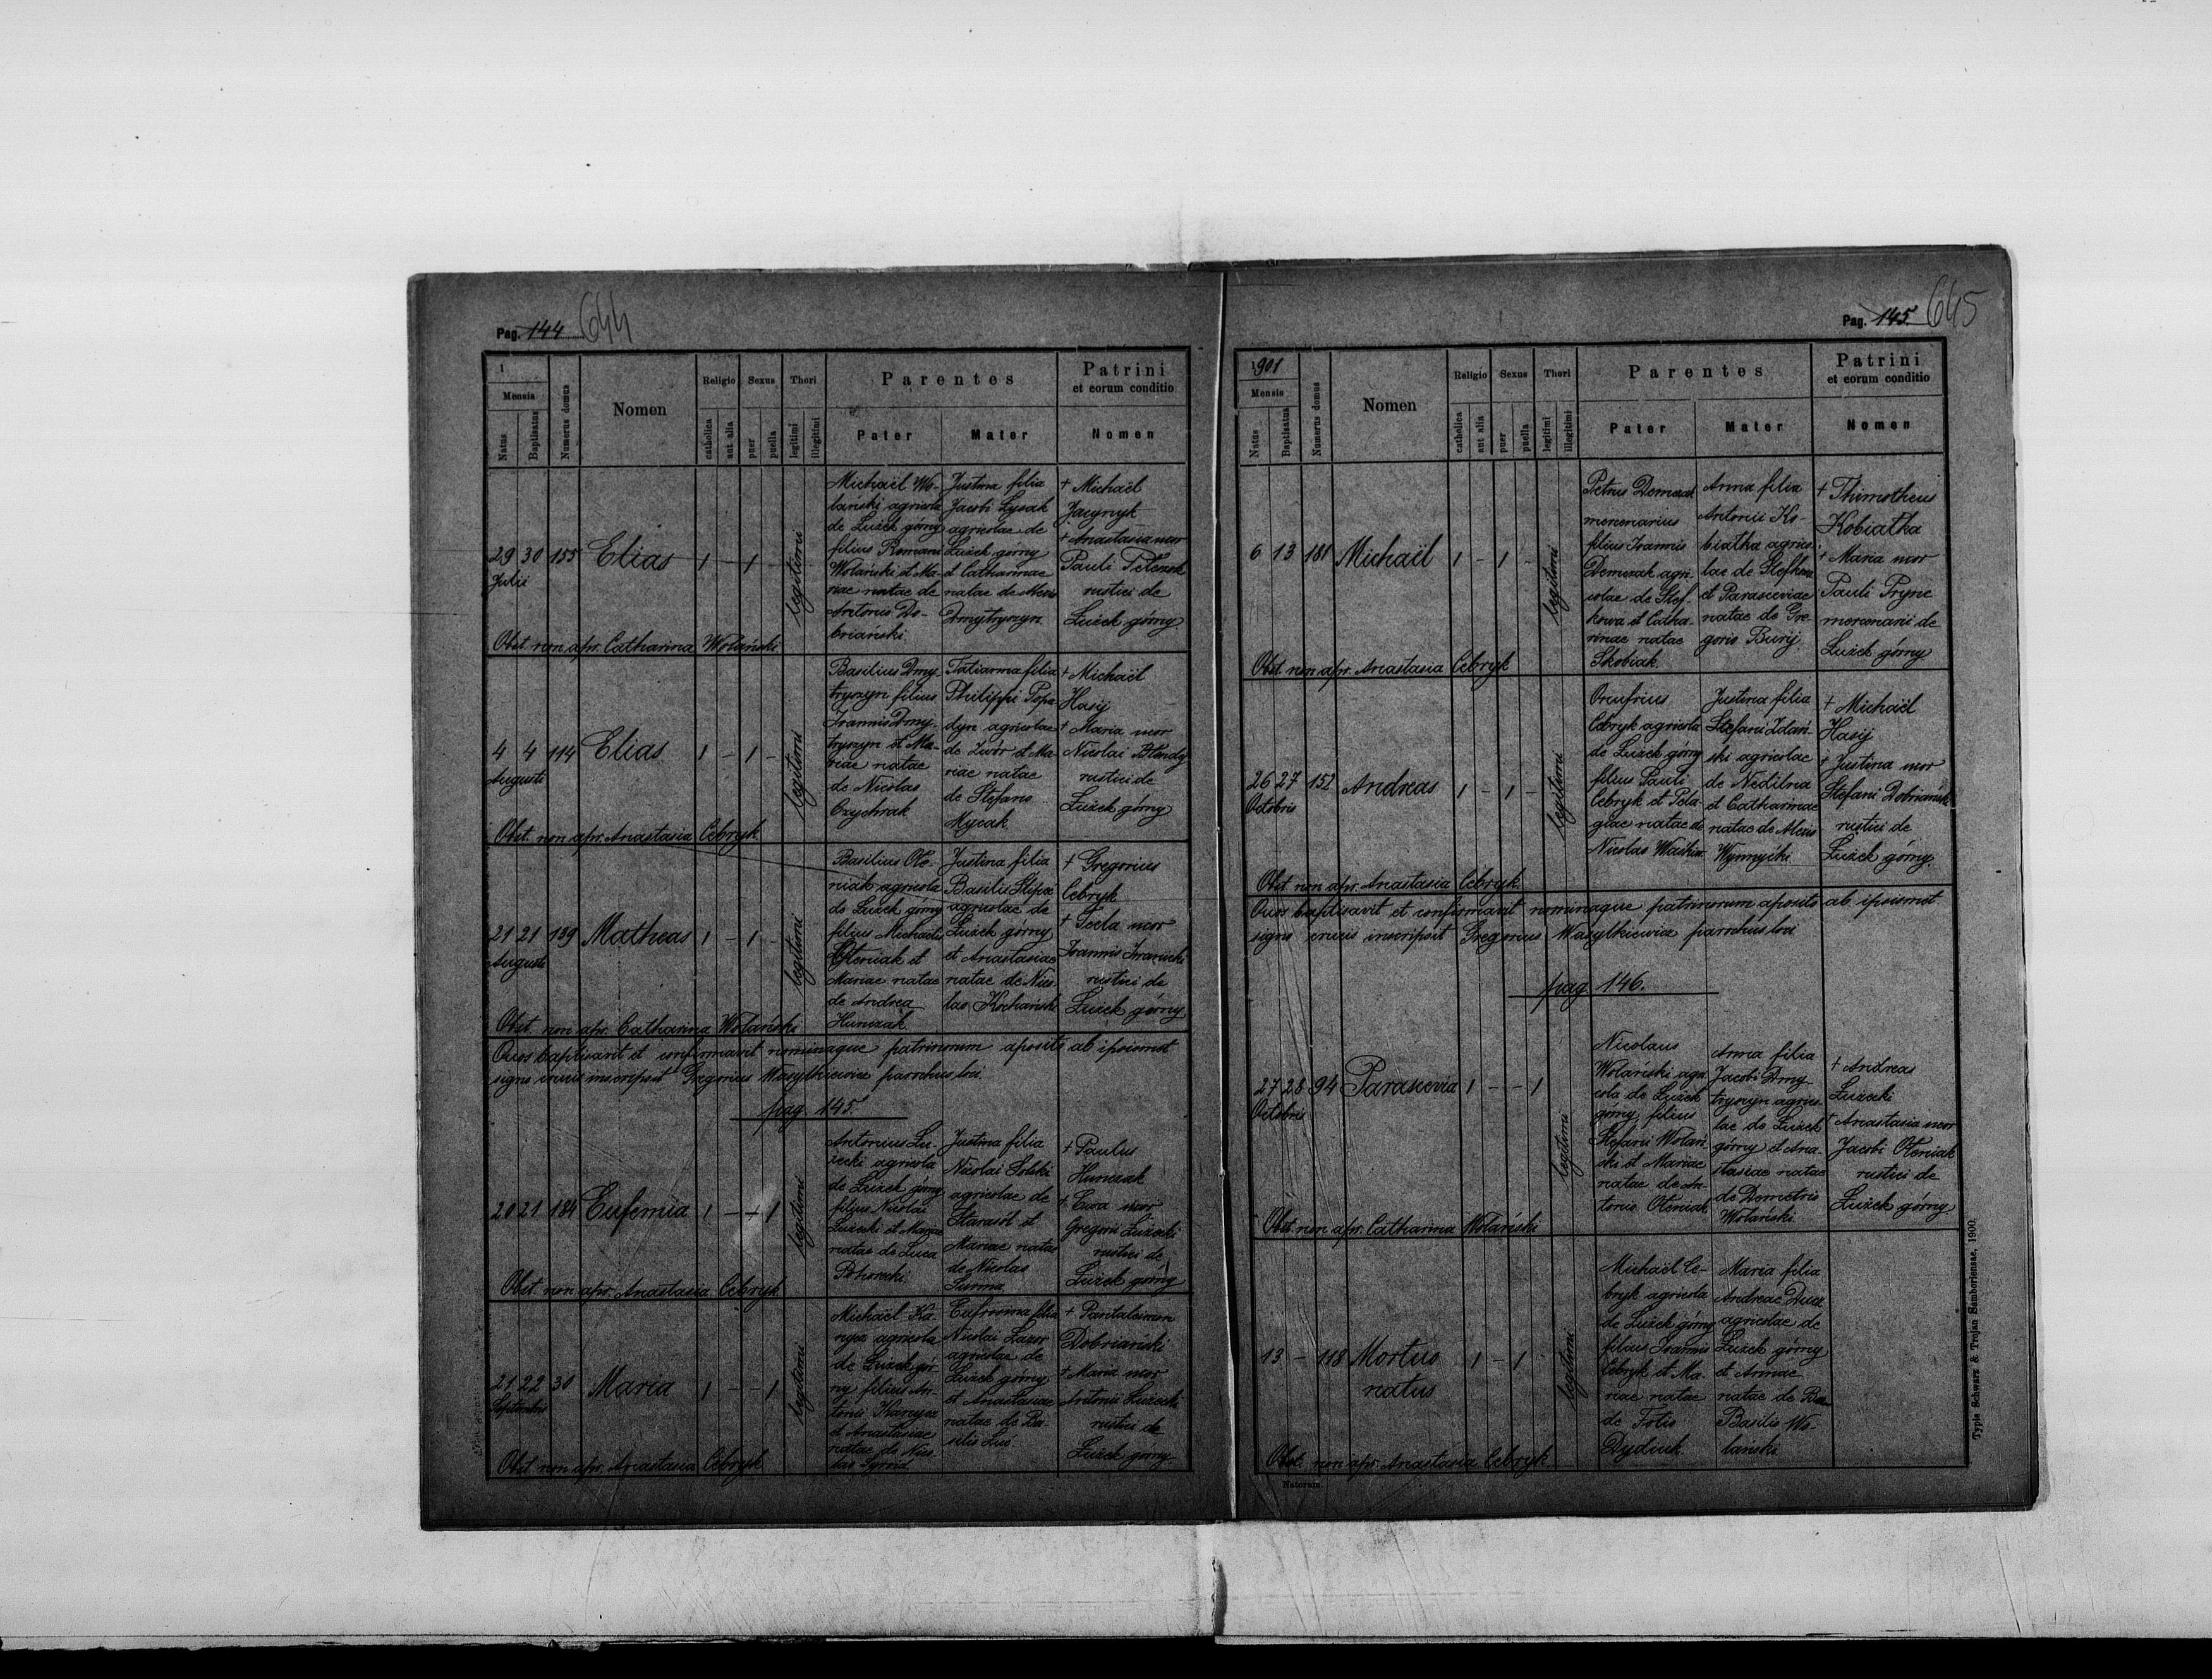 Pag. 144 644
1
Mensis
Natus
Baptisatus
Numerus domus
Nomen
Religio
catholica
aut alia
Sexus
puer
puella
Thori
legitimi
illegitimi
Parentes
Pater
Mater
Patrini
et eorum conditio
Nomen
29 30 155 Elias 1 - 1 -
Julii
legitimi
Michaël Wo-
lański agricola
de Łużek górny
filius Romani
Wolański et Ma-
riae natae de
Antonio Do-
briański.
Justina filia
Jacobi Lysak
agricolae de
Łużek górny
et Catharinae
natae de Alexio
Dmytryszyn
+ Michaël
Jacynyk
+ Anastasia uxor
Pauli
rustici de
Łużek górny
Obst. non apr. Catharina Wolański
4 4 114 Elias 1 - 1 -
Augusti
legitimi
Basilius Dmy-
tryszyn filius
Joannis Dmy-
tryszyn et Ma-
riae natae
de Nicolao
Czychrak
Tatianna filia
Philippi Popa
dyn agricolae
de Zwór et Ma-
riae natae
de Stefano
Mycak
+ Michaël
Hasij
+ Maria uxor
Nicolai
rustici de
Łużek górny
Obst. non apr. Anastasia Cebryk
21 21 139 Matheas 1 - 1 -
Augusti
legitimi
Basilius Ole-
niak agricola
de Łużek górny
filius Michaelis
Oleniak et
Mariae natae
de Andrea
Hunczak.
Justina filia
Basilii
agricolae de
Łużek górny
et Anastasiae
natae de Nico-
lao Kochański
+ Gregorius
Cebryk
+ Tecla uxor
Joannis Iwanicki
rustici de
Łużek górny
Obst. non apr. Catharina Wolański
Quos baptisavit et confirmavit nominaque patrinorum aposito ab ipsismet
signo crucis inscripsit Gregorius Wasylkiewicz parochus loci
pag 145.
20 21 184 Eufemia 1 - - 1
legitimi
Antonius Łu-
żecki agricola
de Łużek górny
filius Nicolai
Łużecki et Mariae
natae de Luca
Pohorecki
Justina filia
Nicolai Solski
agricolae de
Starasól et
Mariae natae
de Nicolao
Surma
+ Paulus
Hunczak
+ Eva uxor
Gregorii Łużecki
rustici de
Łużek górny
Obst. non apr. Anastasia Cebryk
21 22 30 Maria 1 - - 1
Septembris
legitimi
Michaël Ka-
nycz agricola
de Łużek gór-
ny filius An-
tonii Kanycz
et Anastasiae
natae de Nico-
lao
Eufrosina filia
Nicolai Lazor
agricolae de
Łużek górny
et Anastasiae
natae de Ba-
silio
+ Pantaleimon
Dobriański
+ Maria uxor
Antonii Łużecki
rustici de
Łużek górny
Obst. non apr. Anastasia Cebryk
Pag. 145. 645
901
Mensis
Natus
Baptisatus
Numerus domus
Nomen
Religio
catholica
aut alia
Sexus
puer
puella
Thori
legitimi
illegitimi
Parentes
Pater
Mater
Patrini
et eorum conditio
Nomen
6 13 181 Michaël 1 - 1 -
legitimi
Petrus Demczak
mercenarius
filius Joannis
Demczak agri-
colae de Stef-
kowa et Catha-
rinae natae
Skobiak.
Anna filia
Antonii Ko-
biatka agrico-
lae de Stefkowa
et Parasceviae
natae de Gre-
gorio Burij.
+ Thimotheus
Kobiatka
+ Maria uxor
Pauli Pryne
mercenarii de
Łużek górny
Obst. non apr. Anastasia Cebryk
26 27 152 Andreas 1 - 1 -
Octobris
legitimi
Onufrius
Cebryk agricola
de Łużek górny
filius Pauli
Cebryk et Pela-
giae natae de
Nicolao
Justina filia
Stefani Zdań-
ski agricolae
de Nedilna
et Catharinae
natae de Alexio
Wynnycki.
+ Michaël
Hasij
+ Justina uxor
Stefani Dobriański
rustici de
Łużek górny.
Obst. non apr. Anastasia Cebryk.
Quos baptisavit et confirmavit nominaque patrinorum aposito ab ipsismet
signo crucis inscripsit Gregorius Wasylkiewicz parochus loci
pag 146.
27 28 94 Parascevia 1 - - 1
Octobris
legitimi
Nicolaus
Wolański agri
cola de Łużek
górny filius
Stefani Wolań-
ski et Mariae
natae de An-
tonio Oleniak
Anna filia
Jacobi Dmy-
tryszyn agrico-
lae de Łużek
górny et Ana-
stasiae natae
de Demetrio
Wolański.
+ Andreas
Łużecki
+ Anastasia uxor
Jacobi Oleniak
rustici de
Łużek górny
Obst. non apr. Catharina Wolański
13 - 118 Mortus 1 - 1
natus
legitimi
Michaël Ce-
bryk agricola
de Łużek górny
filius Joannis
Cebryk et Ma-
riae natae
de Fotio
Dydiuk.
Maria filia
Andreae
agricolae de
Łużek górny
et Annae
natae de Ba
Basilio Wo-
lański
Obst. non apr. Anastasia Cebryk
Natorum.
Typis Schwarz & Trojan Samboriensae, 1900.